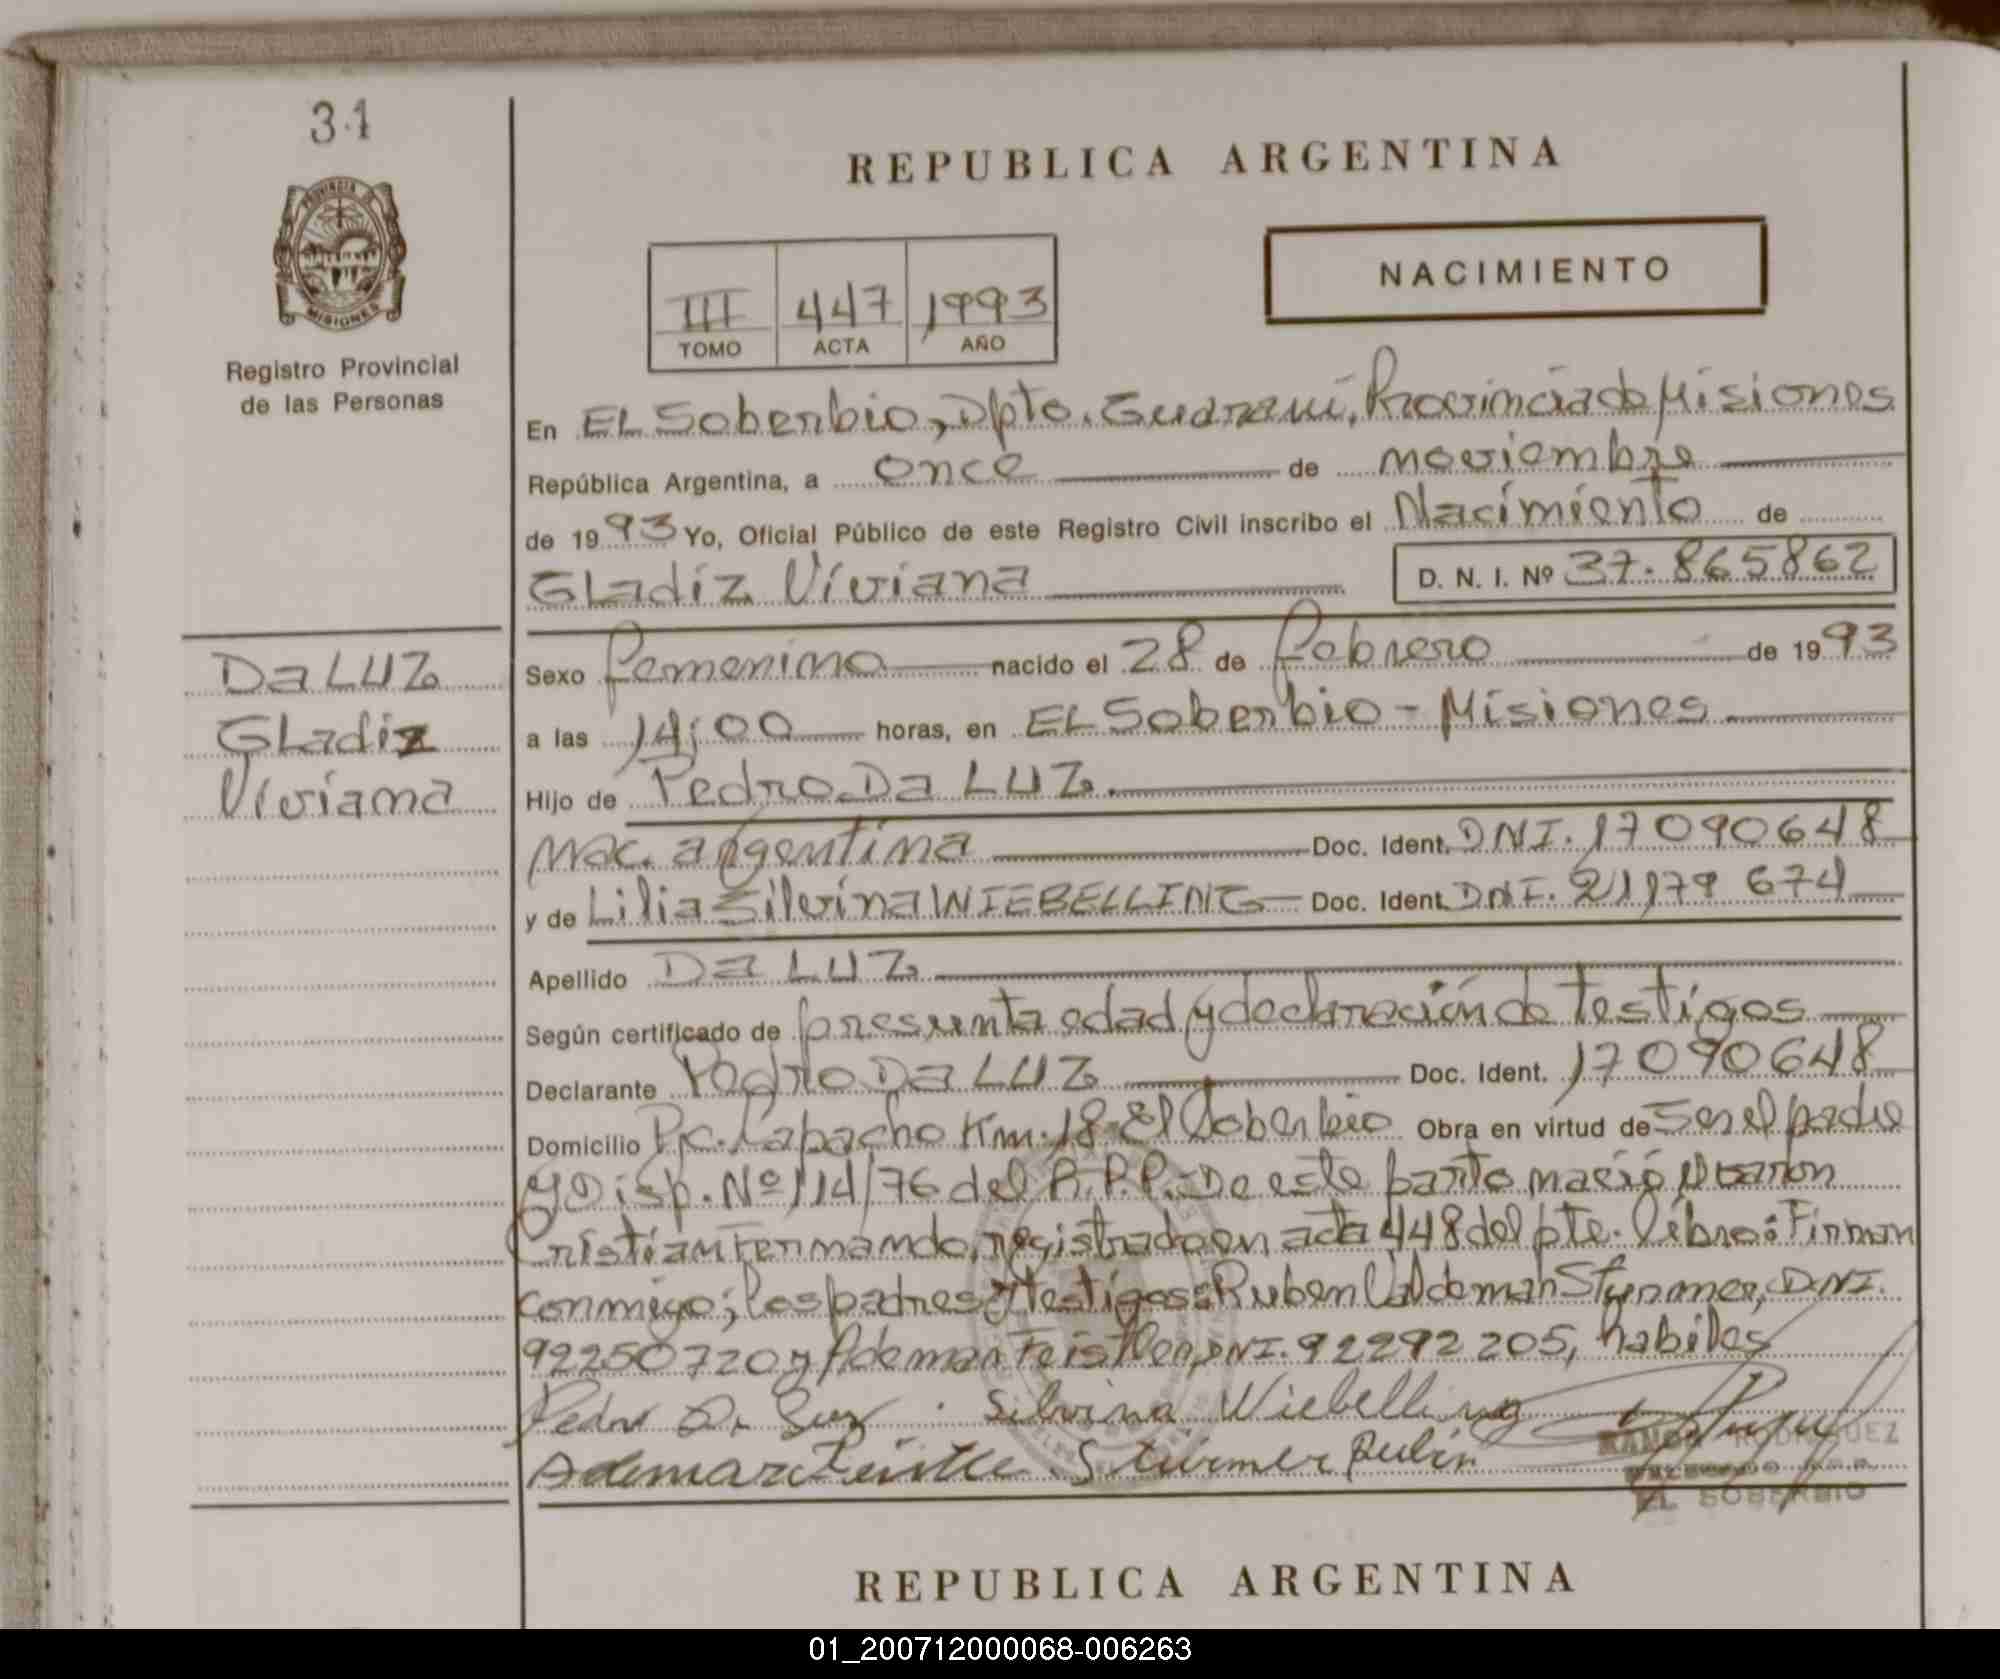 31
PROVINCIA DE
MISIONES
Registro Provincial
de las Personas
REPUBLICA ARGENTINA
NACIMIENTO
III 447 1993
TOMO ACTA AÑO
En EL Soberbio, Dpto. Guaraní, Provincia de Misiones
República Argentina, a once de noviembre
de 1993 Yo, Oficial Público de este Registro Civil inscribo el Nacimiento de
GLadiz Viviana D. N. I. Nº 37.865862
Da LUZ
GLadiz
Viviana
Sexo femenino nacido el 28 de febrero de 1993
a las 14;00 horas, en EL Soberbio - Misiones
Hijo de Pedro Da LUZ.
nac. argentina Doc. Ident. DNI. 17090648
y de Lilia Silvina WIEBELLING Doc. Ident. DNI. 21179 674
Apellido Da LUZ
Según certificado de presunta edad y declaración de Testigos
Declarante Pedro Da LUZ Doc. Ident. 17090648
Domicilio Pic. Lapacho Km. 18 El Soberbio Obra en virtud de Ser el padre
y Disp. Nº 114/76 del R.P.P. De este parto nació varon
Cristian Fernando, registrado en acta 448 del pte. libro: Firman
conmigo; los padres y testigos: Ruben Valdemar Sturmer, D.N.I.
92250720 y Ademar Feistler, DNI. 92292205, habiles
Pedro Da Luz Silvina Wiebelling
Ademar Feistle Sturmer Rubin
RAMON RODRIGUEZ
EL SOBERBIO
REPUBLICA ARGENTINA
01_200712000068-006263